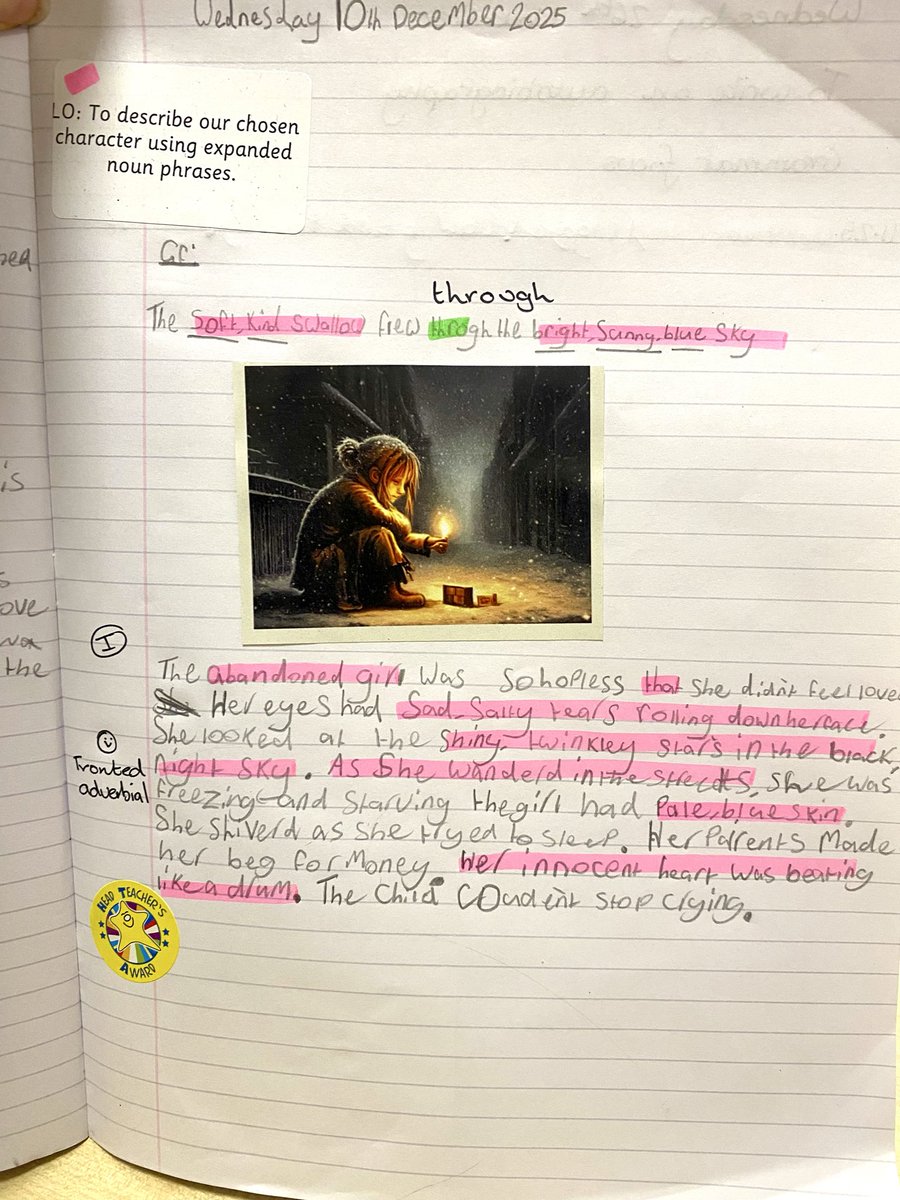 Wednesday 10th December 2025
LO: To describe our chosen
character using expanded
noun phrases.
GC:
through
The Soft, Kind Swallow frew throgh the bright, Sunny, blue Sky
I
The abandoned girl was so hopless that She didn't feel love
Her eyes had Sad, Salty tears rolling down her face.
She looked at the Shiny, twinkley stars in the black,
night Sky. As She wanderd in the streets, She was
Fronted
adverbial
freezing and starving the girl had Pale, blue skin.
She Shiverd as She tryed to sleep. Her Parents Made
her beg for Money. Her innocent heart was beating
like a drum. The Child Coudent stop crying.
HEAD TEACHER'S
AWARD
red
is
s
ove
the